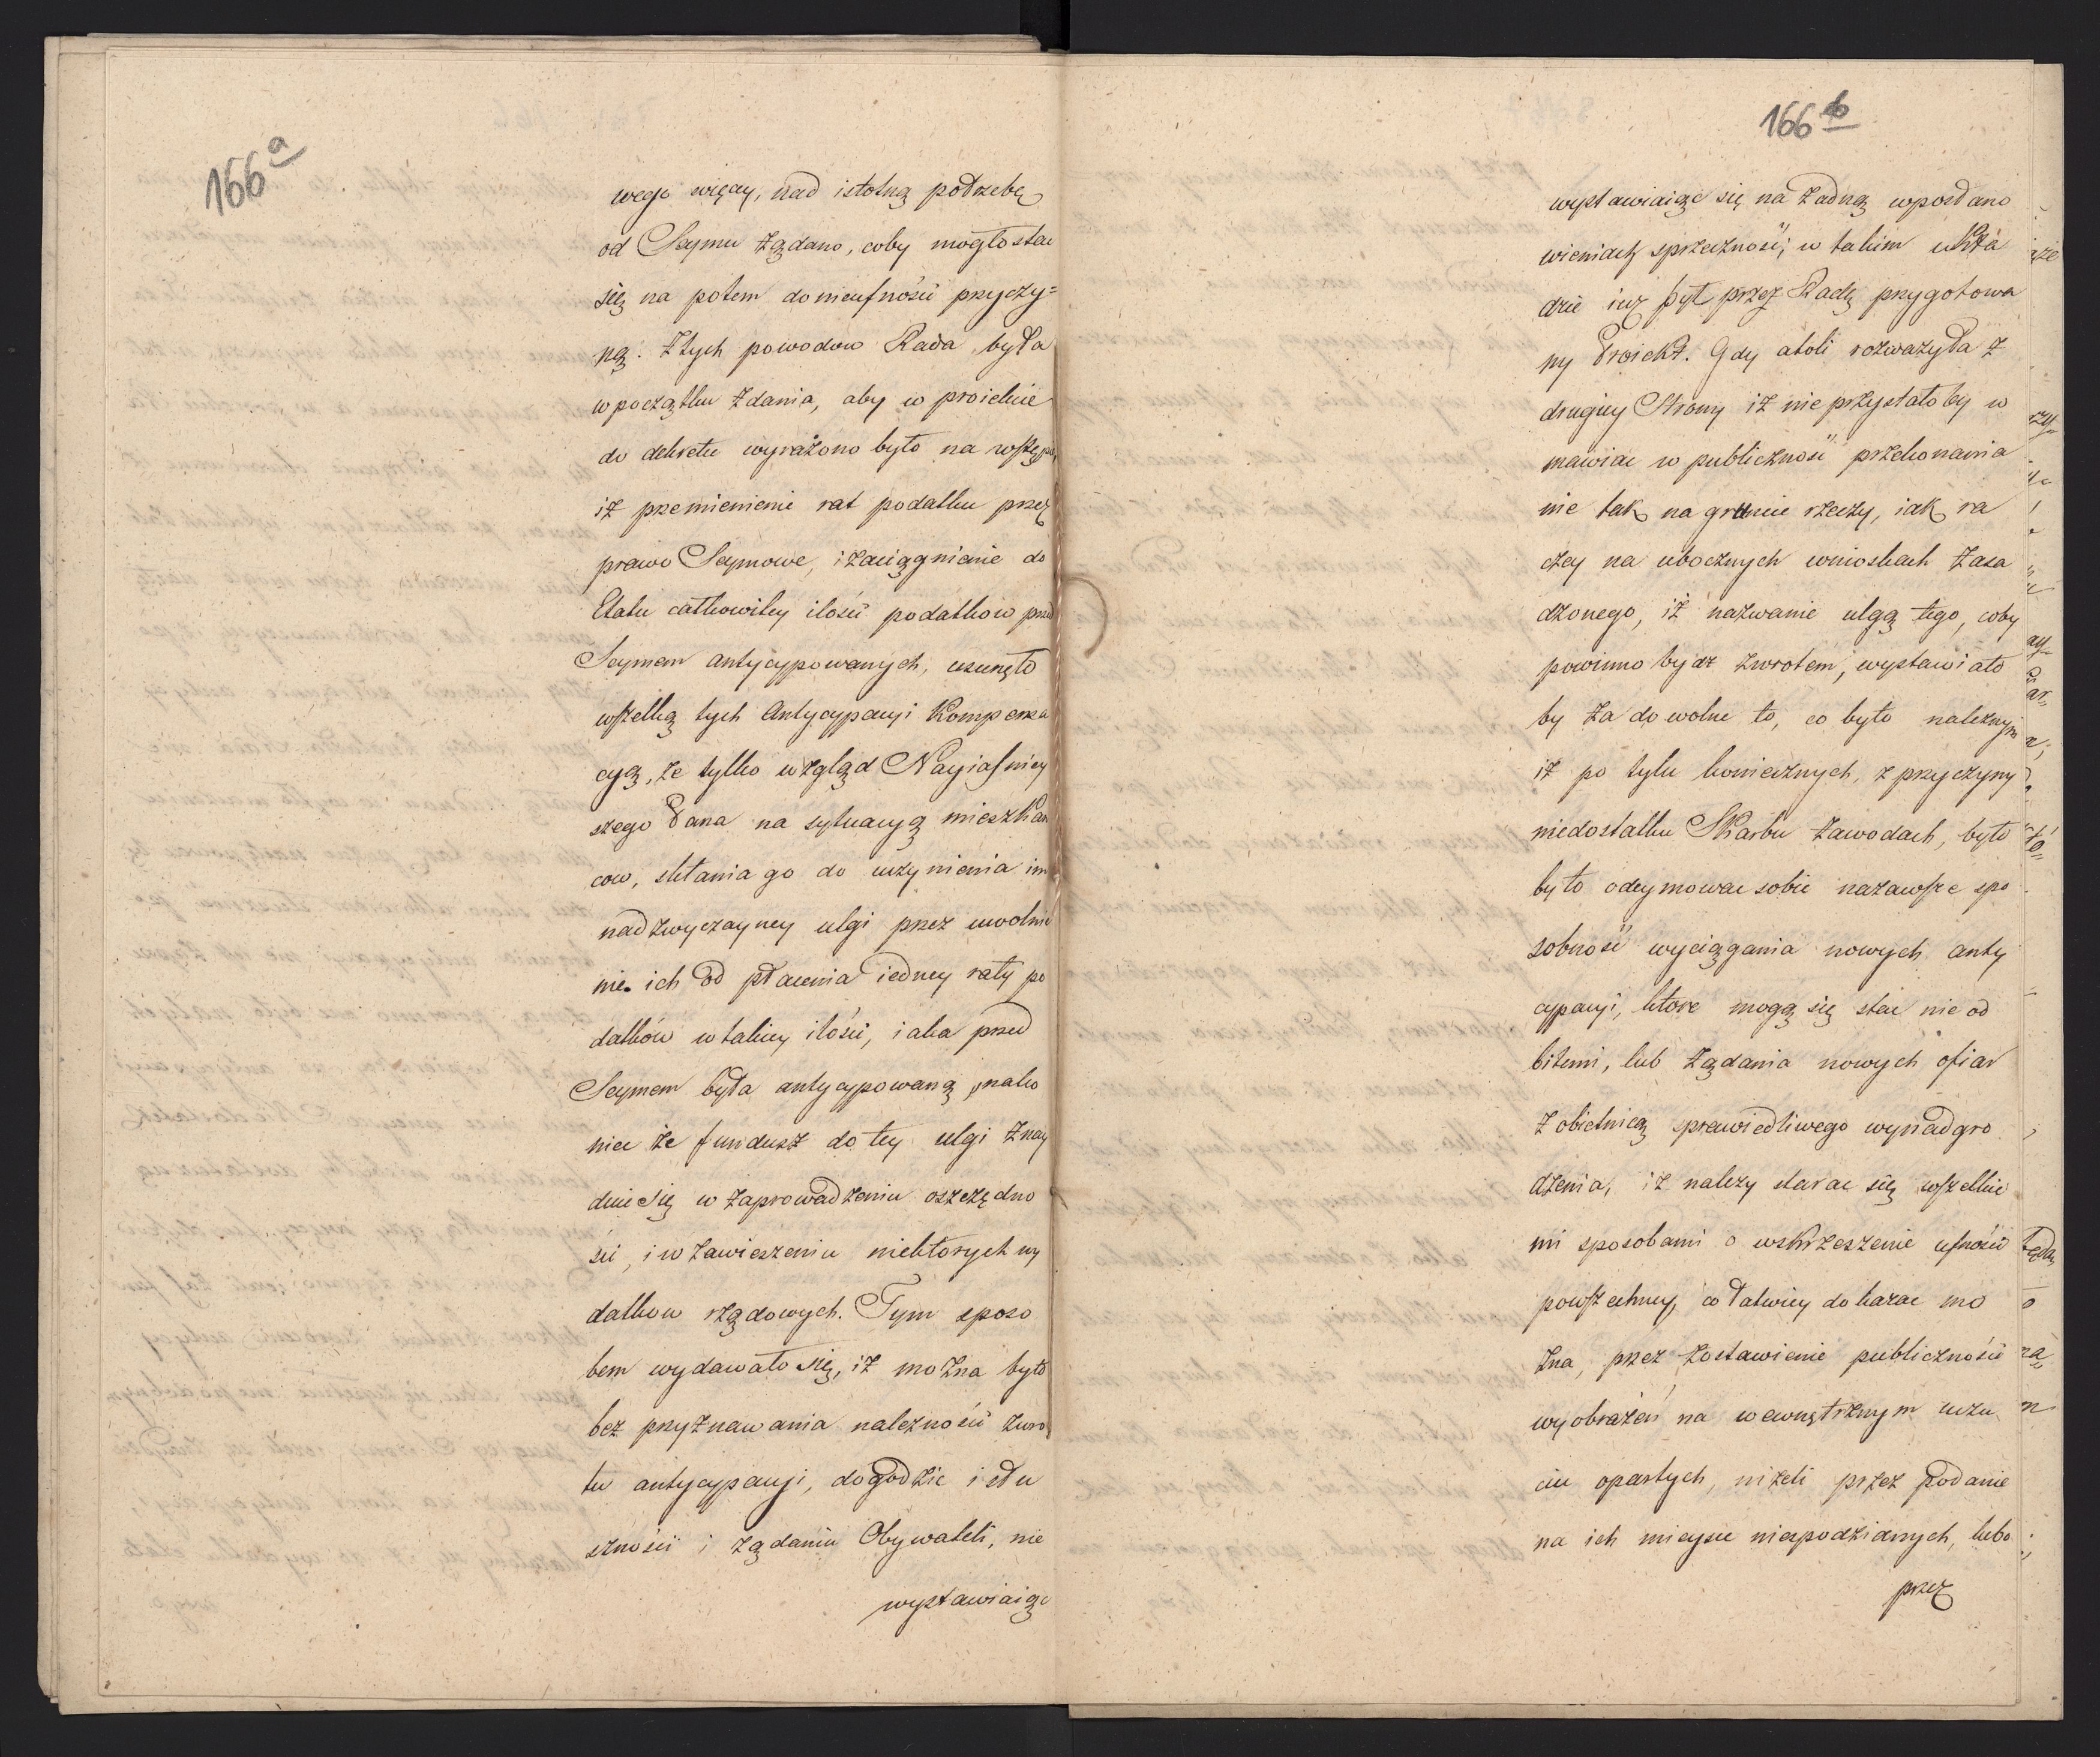 166 a
wego więcey, nad istotną potrzebę
od Seymu żądano, coby mogło stać
się na potem do nieufności przyczy=
ną. Z tych powodow Rada była
w początku zdania, aby w proiekcie
do dekretu wyrażono było na wstępie,
iż przemienienie rat podatku przez
prawo Seymowe, i zaciągnienie do
Etatu całkowitey ilości podatkow przed
Seymem antycypowanych, usunęło
wszelką tych Antycypacyi Kompensa
cyą, że tylko wzgląd Nayiaśniey
szego Pana na sytuacyą mieszkań
cow, skłania go do uczynienia im
nadzwyczayney ulgi przez uwolnie
nie ich od płacenia iedney raty po
datków w takiey ilości, iaka przed
Seymem była antycypowaną, nako
niec że fundusz do tey ulgi znay
dzie się w zaprowadzeniu oszczędno
ści, i w zawieszeniu niektorych wy
datkow rządowych. Tym sposo
bem wydawało się, iż można było
bez przyznawania należności zwro
tu antycypacyi, dogodzić i słu
szności i żądaniu Obywateli, nie
wystawiaiąc
166 b
wystawiaiąc się na żadną w postano
wieniach sprzeczność; w takim ukła
dzie iuż był przez Radę przygotowa
ny Proiekt. Gdy atoli rozważyła z
drugiey Strony iż nie przystało by w
mawiać w publiczność przekonania
nie tak na gruncie rzeczy, iak ra
czey na ubocznych wnioskach zasa
dzonego, iż nazwanie ulgą tego, coby
powinno bydź zwrotem, wystawiało
by za dowolne to, co było należnym
iż po tylu koniecznych, z przyczyny
niedostatku Skarbu zawodach, było
było odeymować sobie nazawsze spo
sobność wyciągania nowych anty
cypacyi, ktore mogą się stać nieod
bitemi, lub żądania nowych ofiar
z obietnicą sprawiedliwego wynadgro
dzenia, iż należy starać się wszelkie
mi sposobami o wskrzeszenie ufności
powszechney, co łatwiey dokazać mo
żna, przez zostawienie publiczności
wyobrażeń na wewnętrznym uczu
ciu opartych, niżeli przez podanie
na ich mieysce niespodzianych, lubo
przez